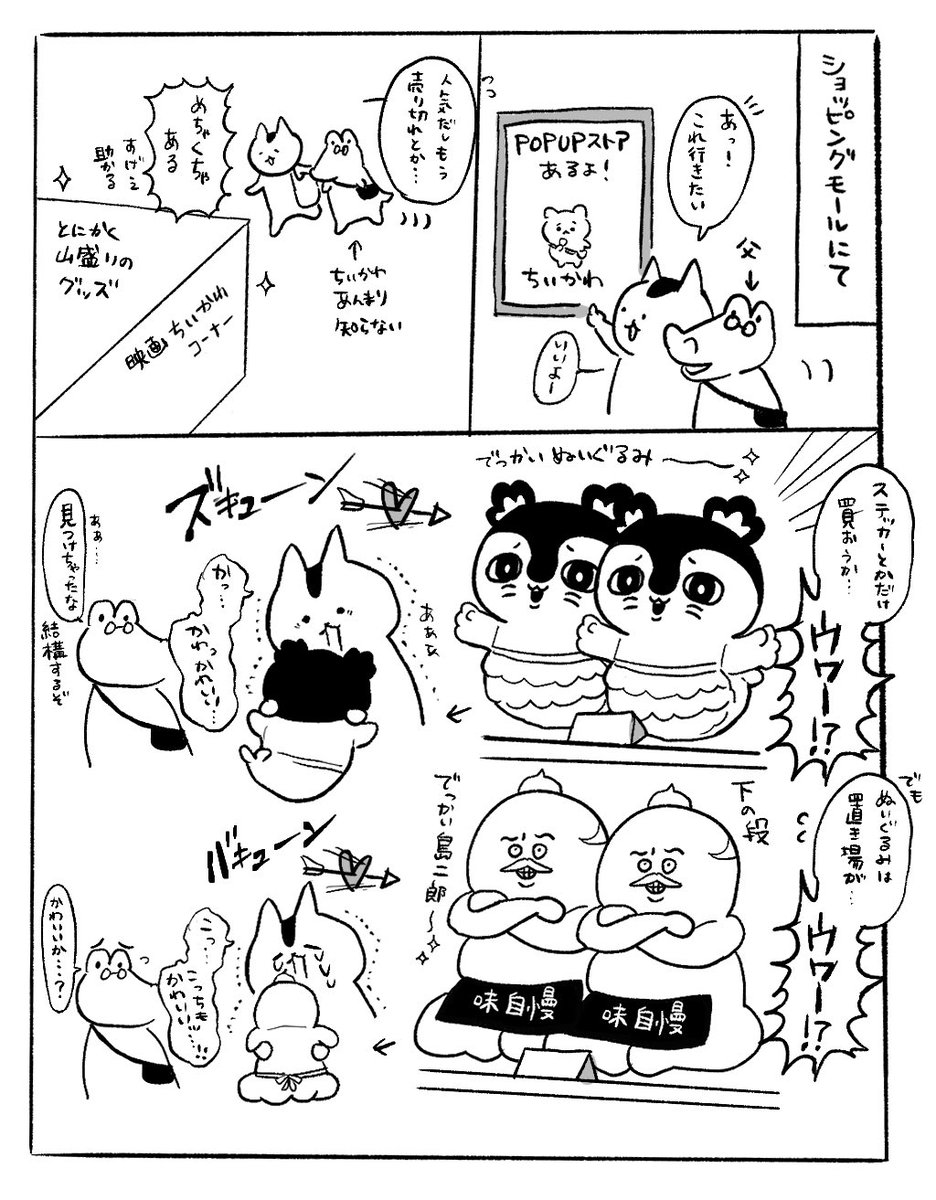 ショッピングモールにて
あっ!
これ行きたい
POPUPストア
あるよ!
ちいかわ
父
いいよー
人気だしもう
売り切れとか…
めちゃくちゃ
ある
すげえ
助かる
ちいかわ
あんまり
知らない
とにかく
山盛りの
グッズ
映画ちいかわ
コーナー
ステッカーとかだけ
買おうか…
ウワー!?
でっかいぬいぐるみ〜
ズキューン
ああぁ
かっ…
かわっかわいい…
ああ…
見つけちゃったな
結構するぞ
でも
ぬいぐるみは
置き場が…
ウワー!?
下の段
でっかい島二郎〜
味自慢
味自慢
バキューン
こっ…
こっちも
かわいい…!!
かわいいか…?